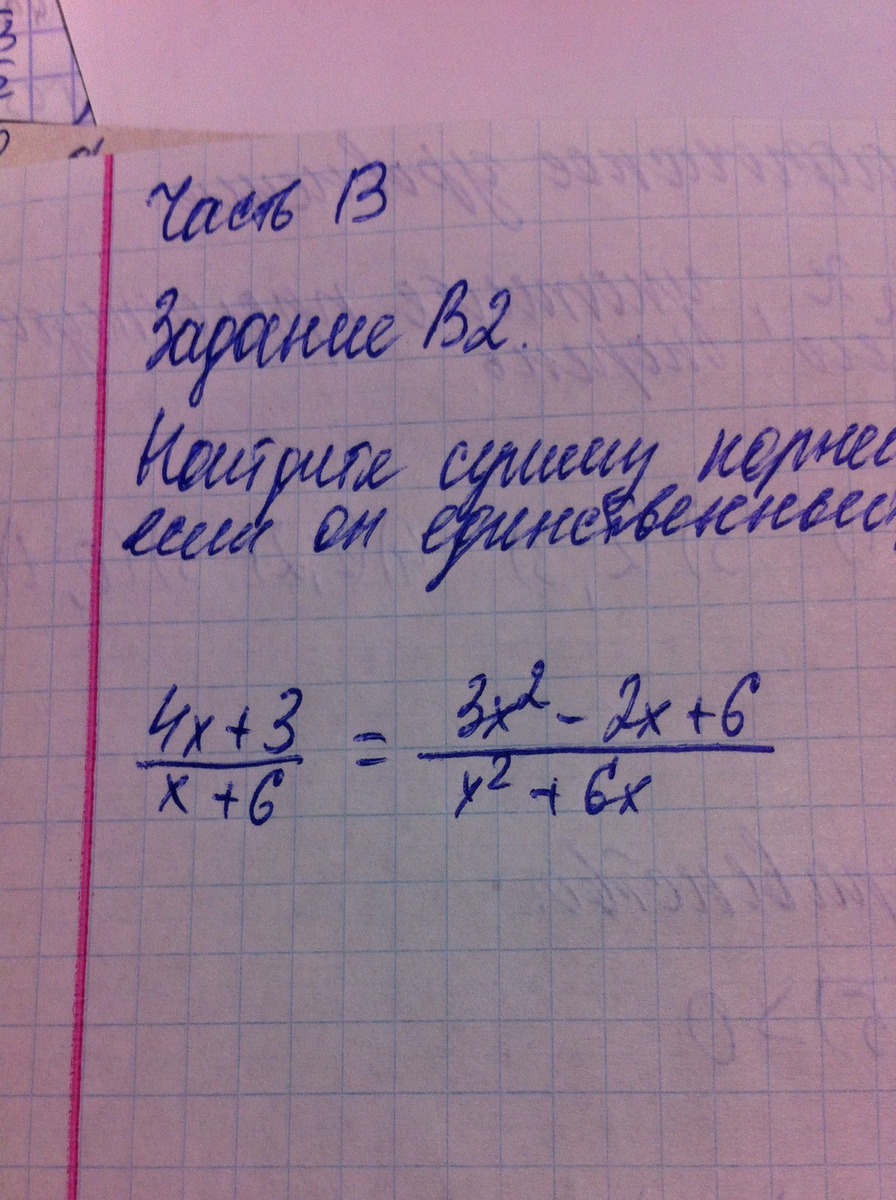 Часть В
Задание В2.
Найдите сумму корне
если он единственный
4x+3 / x+6 = 3x² - 2x + 6 / x² + 6x